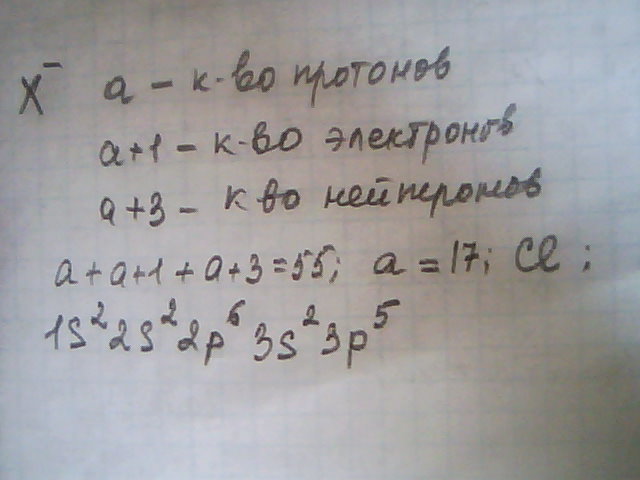 X⁻ a – к-во протонов
a+1 – к-во электронов
a+3 – к во нейтронов
a+a+1+a+3=55; a=17; Cl;
1s²2s²2p⁶3s²3p⁵